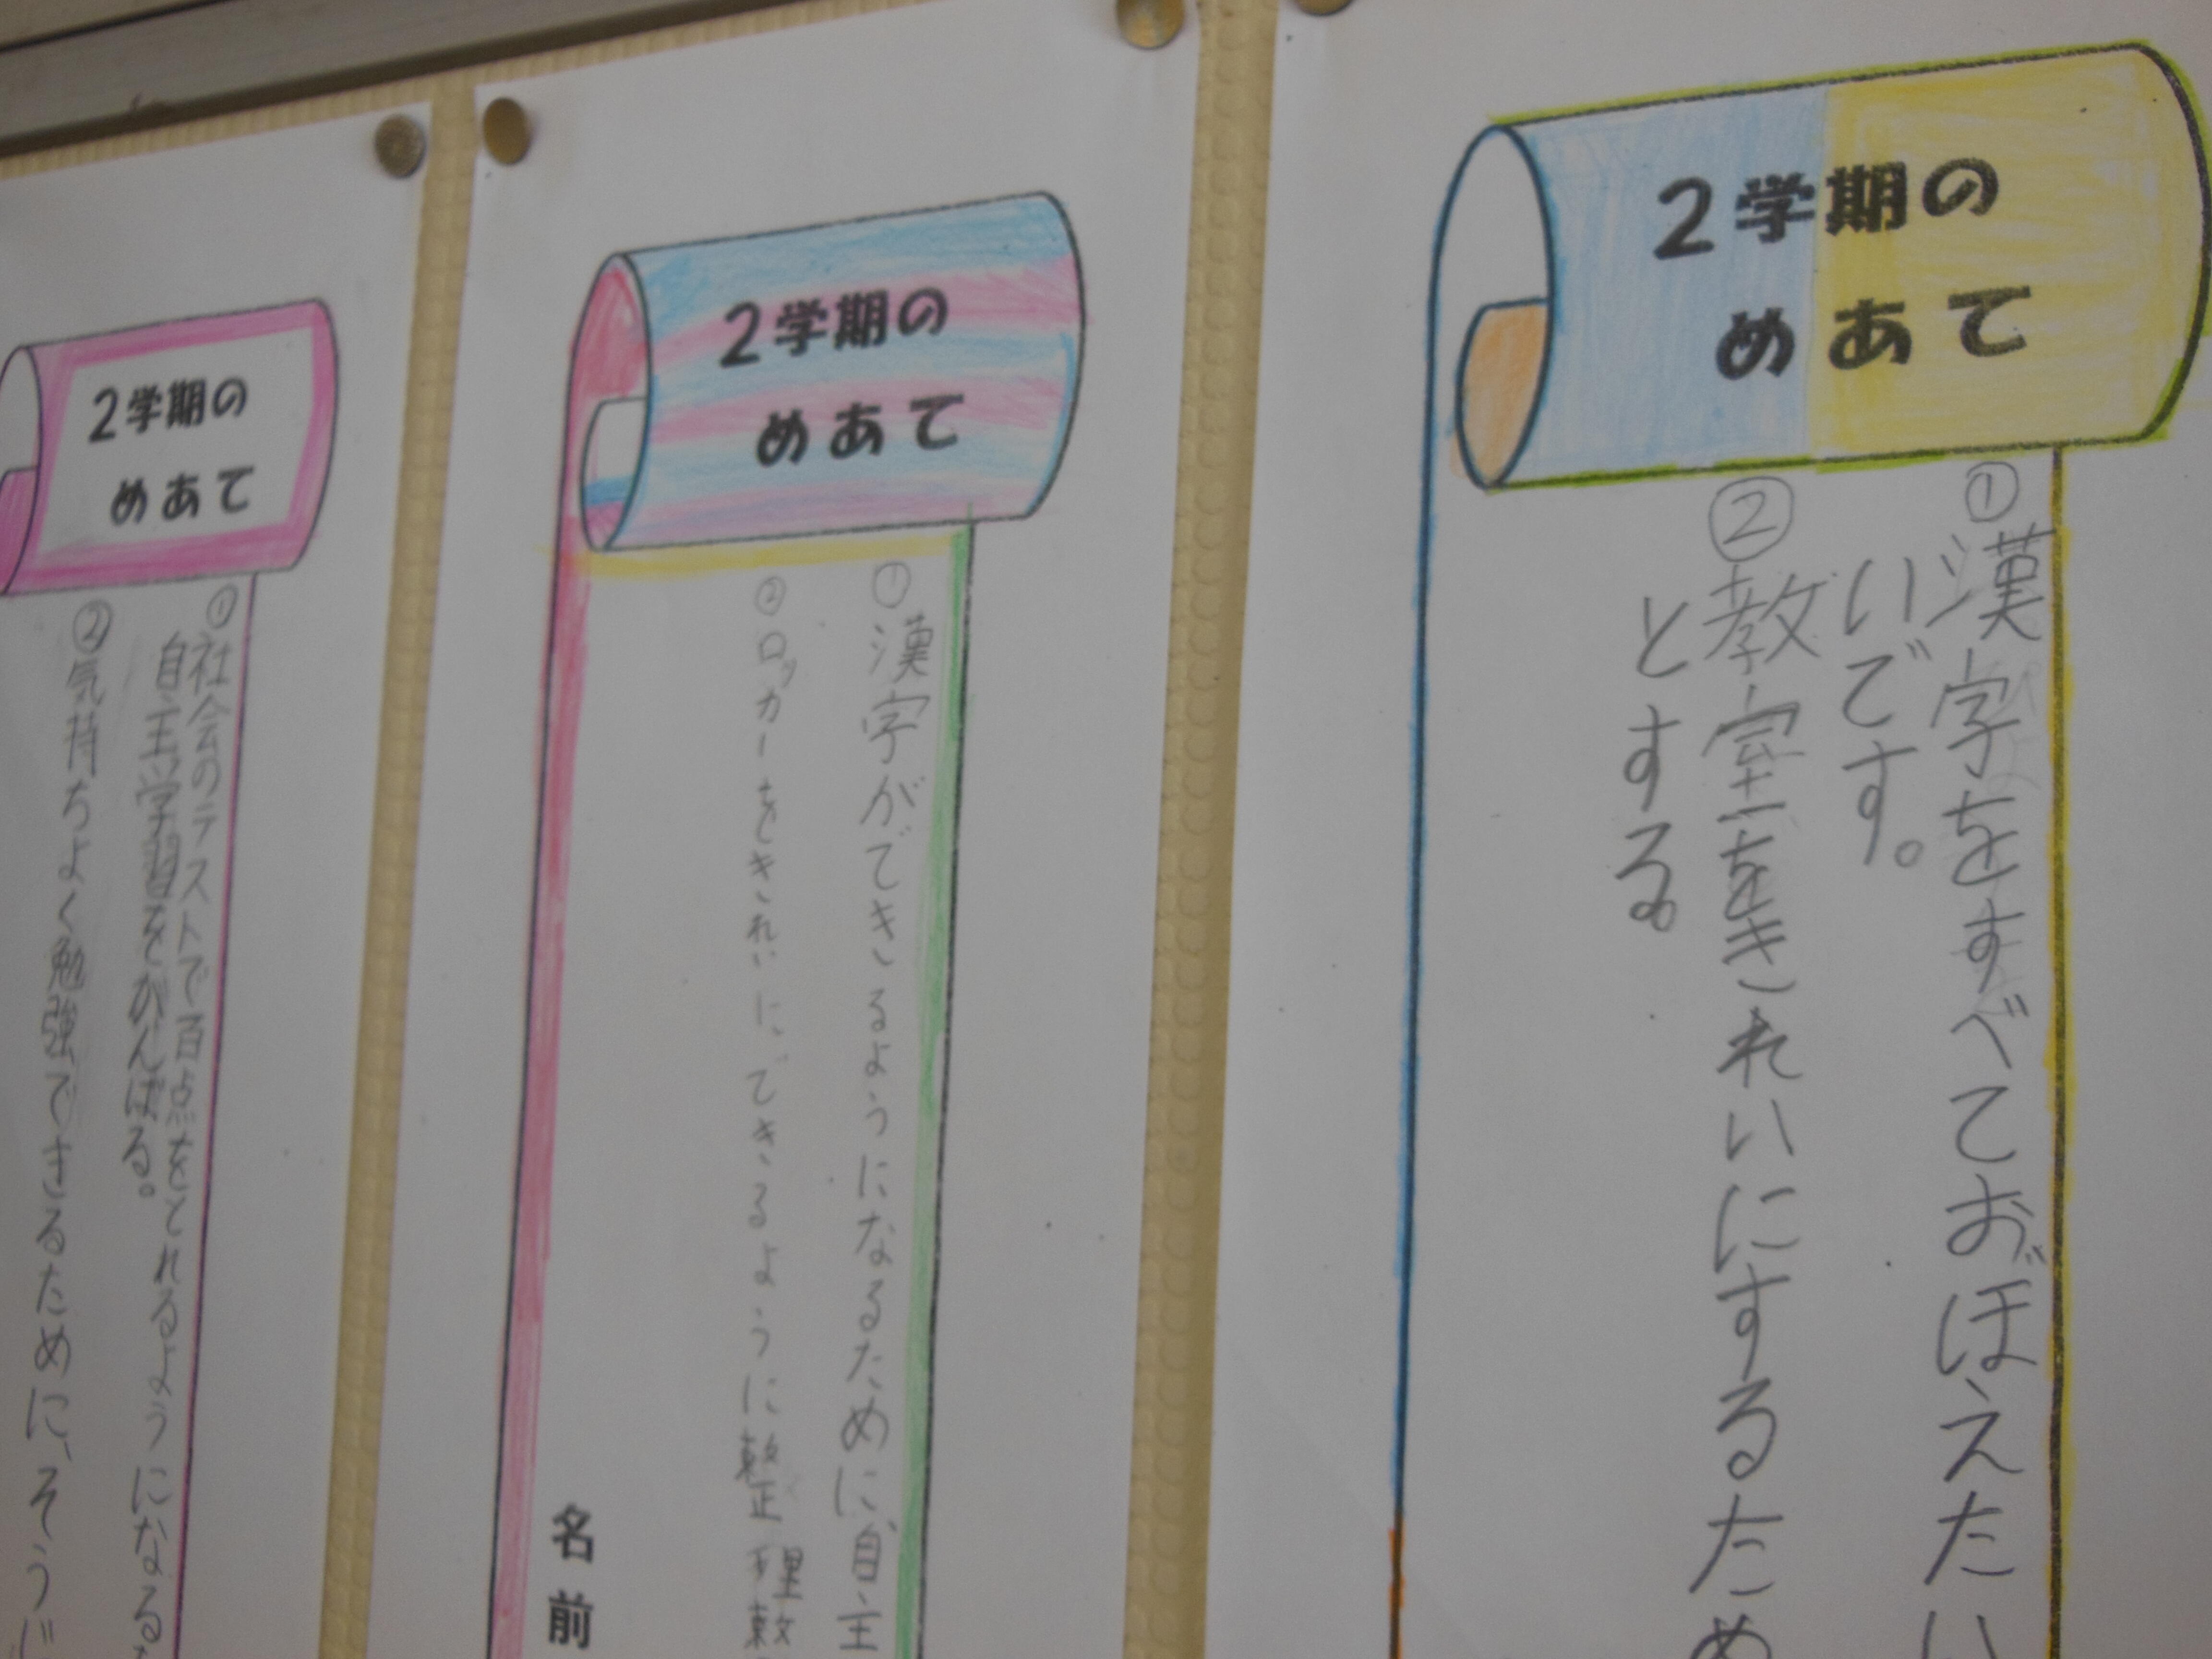 2学期の
めあて
①漢字をすべておぼえたい
いです。
②教室をきれいにするため
とする。
2学期の
めあて
①漢字ができるようになるために、自主
②ロッカーをきれいに、できるように整理整
名前
2学期の
めあて
①社会のテストで百点をとれるようになる
自主学習をがんばる。
②気持ちよく勉強できるために、そうじ